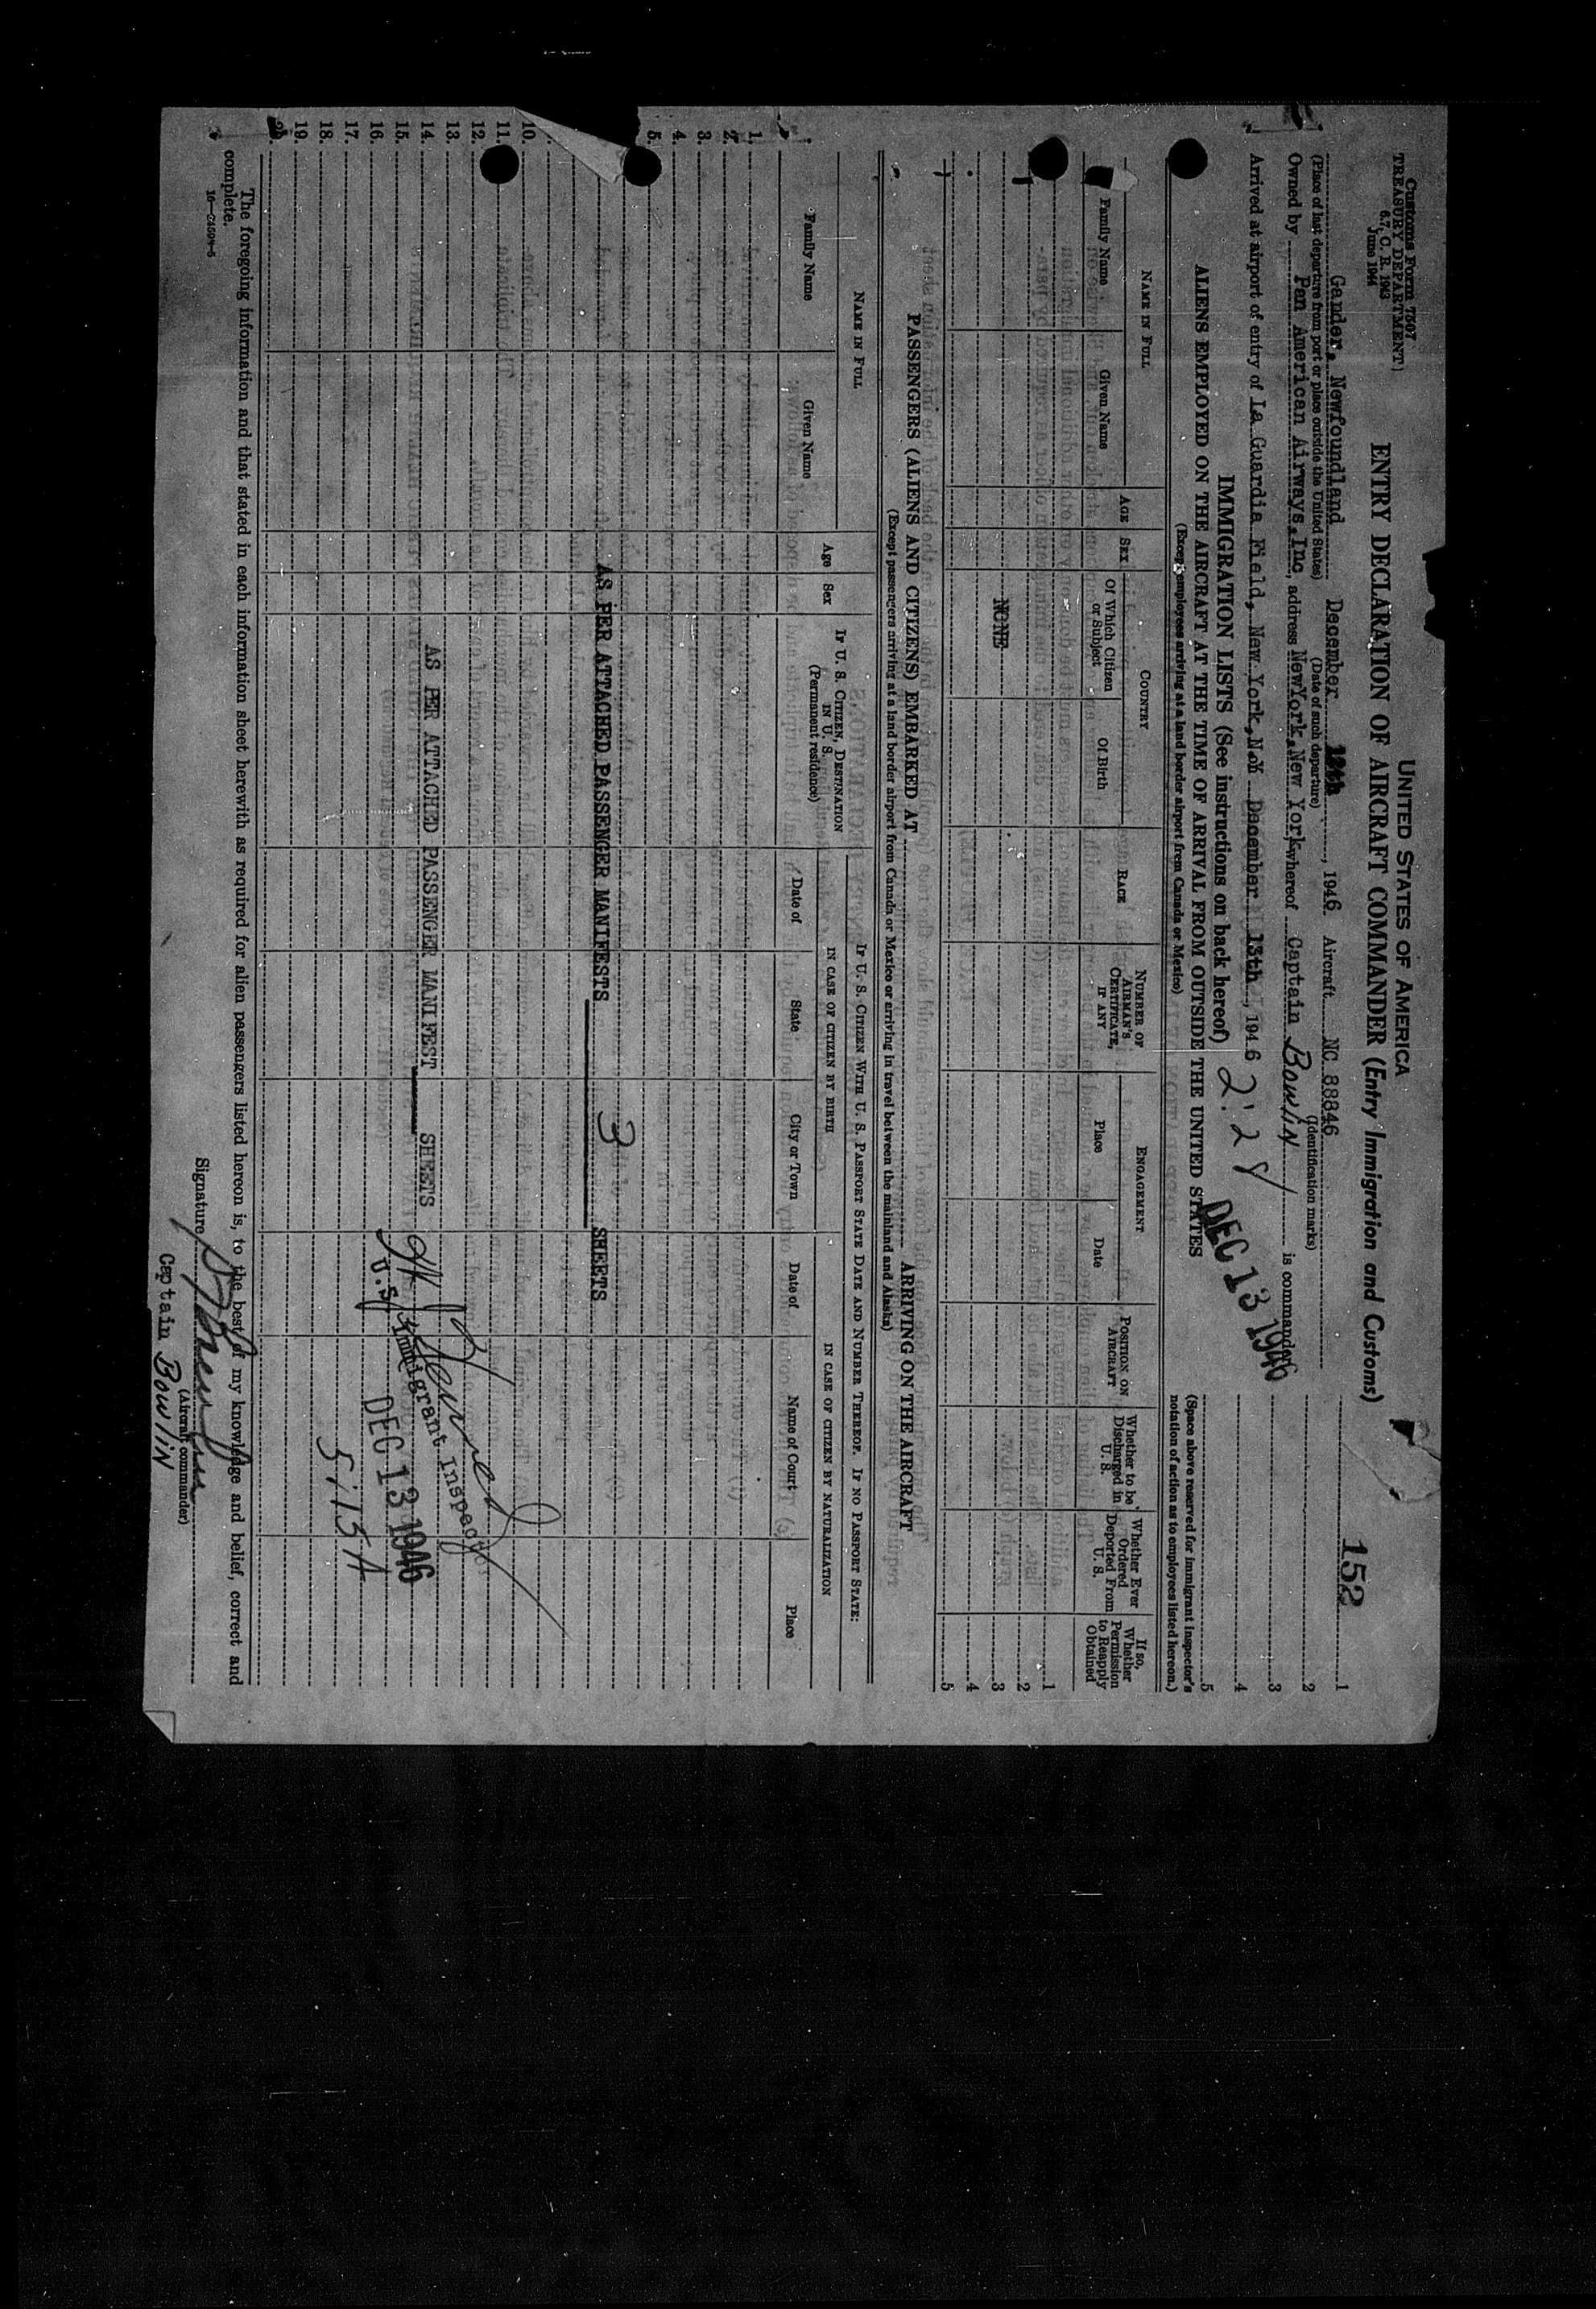 Customs Form 7507
TREASURY DEPARTMENT
6.7, C. R. 1943
June 1944
UNITED STATES OF AMERICA
ENTRY DECLARATION OF AIRCRAFT COMMANDER (Entry Immigration and Customs)
152
Gander, Newfoundland December 12th, 1946 Aircraft NC 88846
(Place of last departure from port or place outside the United States) (Date of such departure) (Identification marks)
Owned by Pan American Airways, Inc, address NewYork, New York whereof Captain Bowlin is commander
Arrived at airport of entry of La Guardia Field, New York, N.Y December 13th, 1946
DEC 13 1946
1
2
3
4
5
(Space above reserved for immigrant inspector's notation of action as to employees listed hereon.)
IMMIGRATION LISTS (See instructions on back hereof)
ALIENS EMPLOYED ON THE AIRCRAFT AT THE TIME OF ARRIVAL FROM OUTSIDE THE UNITED STATES
(Except employees arriving at a land border airport from Canada or Mexico)
NAME IN FULL
Family Name
Given Name
AGE
SEX
COUNTRY
Of Which Citizen or Subject
Of Birth
RACE
NUMBER OF AIRMAN'S CERTIFICATE, IF ANY
ENGAGEMENT
Place
Date
POSITION ON AIRCRAFT
Whether to be Discharged in U. S.
Whether Ever Ordered Deported From U. S.
If so, Whether Permission to Reapply Obtained
1
2
NONE 3
4
5
PASSENGERS (ALIENS AND CITIZENS) EMBARKED AT ARRIVING ON THE AIRCRAFT
(Except passengers arriving at a land border airport from Canada or Mexico or arriving in travel between the mainland and Alaska)
NAME IN FULL
Family Name
Given Name
Age
Sex
IF U. S. CITIZEN, DESTINATION IN U. S.
(Permanent residence)
IF U. S. CITIZEN WITH U. S. PASSPORT STATE DATE AND NUMBER THEREOF. IF NO PASSPORT STATE:
IN CASE OF CITIZEN BY BIRTH
Date of
State
City or Town
IN CASE OF CITIZEN BY NATURALIZATION
Date of
Name of Court
Place
1.
2.
3.
4.
5.
AS PER ATTACHED PASSENGER MANIFESTS 3 SHEETS
10.
11.
12.
13.
14. AS PER ATTACHED PASSENGER MANIFEST SHEETS
15.
16.
17.
18.
19.
20.
U.S. Immigrant Inspector
DEC 13 1946
5:15 A
The foregoing information and that stated in each information sheet herewith as required for alien passengers listed hereon is, to the best of my knowledge and belief, correct and complete.
16—24594-5
Signature
(Aircraft commander)
Captain Bowlin